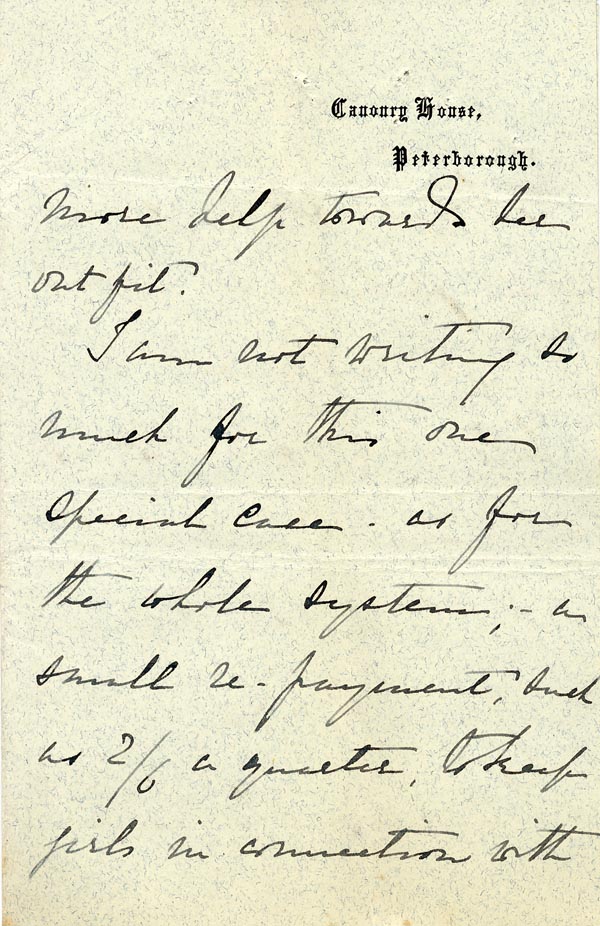 Canonry House,
Peterborough.
more help towards her
outfit?
I am not writing so
much for this one
special case - as for
the whole system; - a
small re-payment, such
as 2/6 a quarter, to keep
girls in connection with